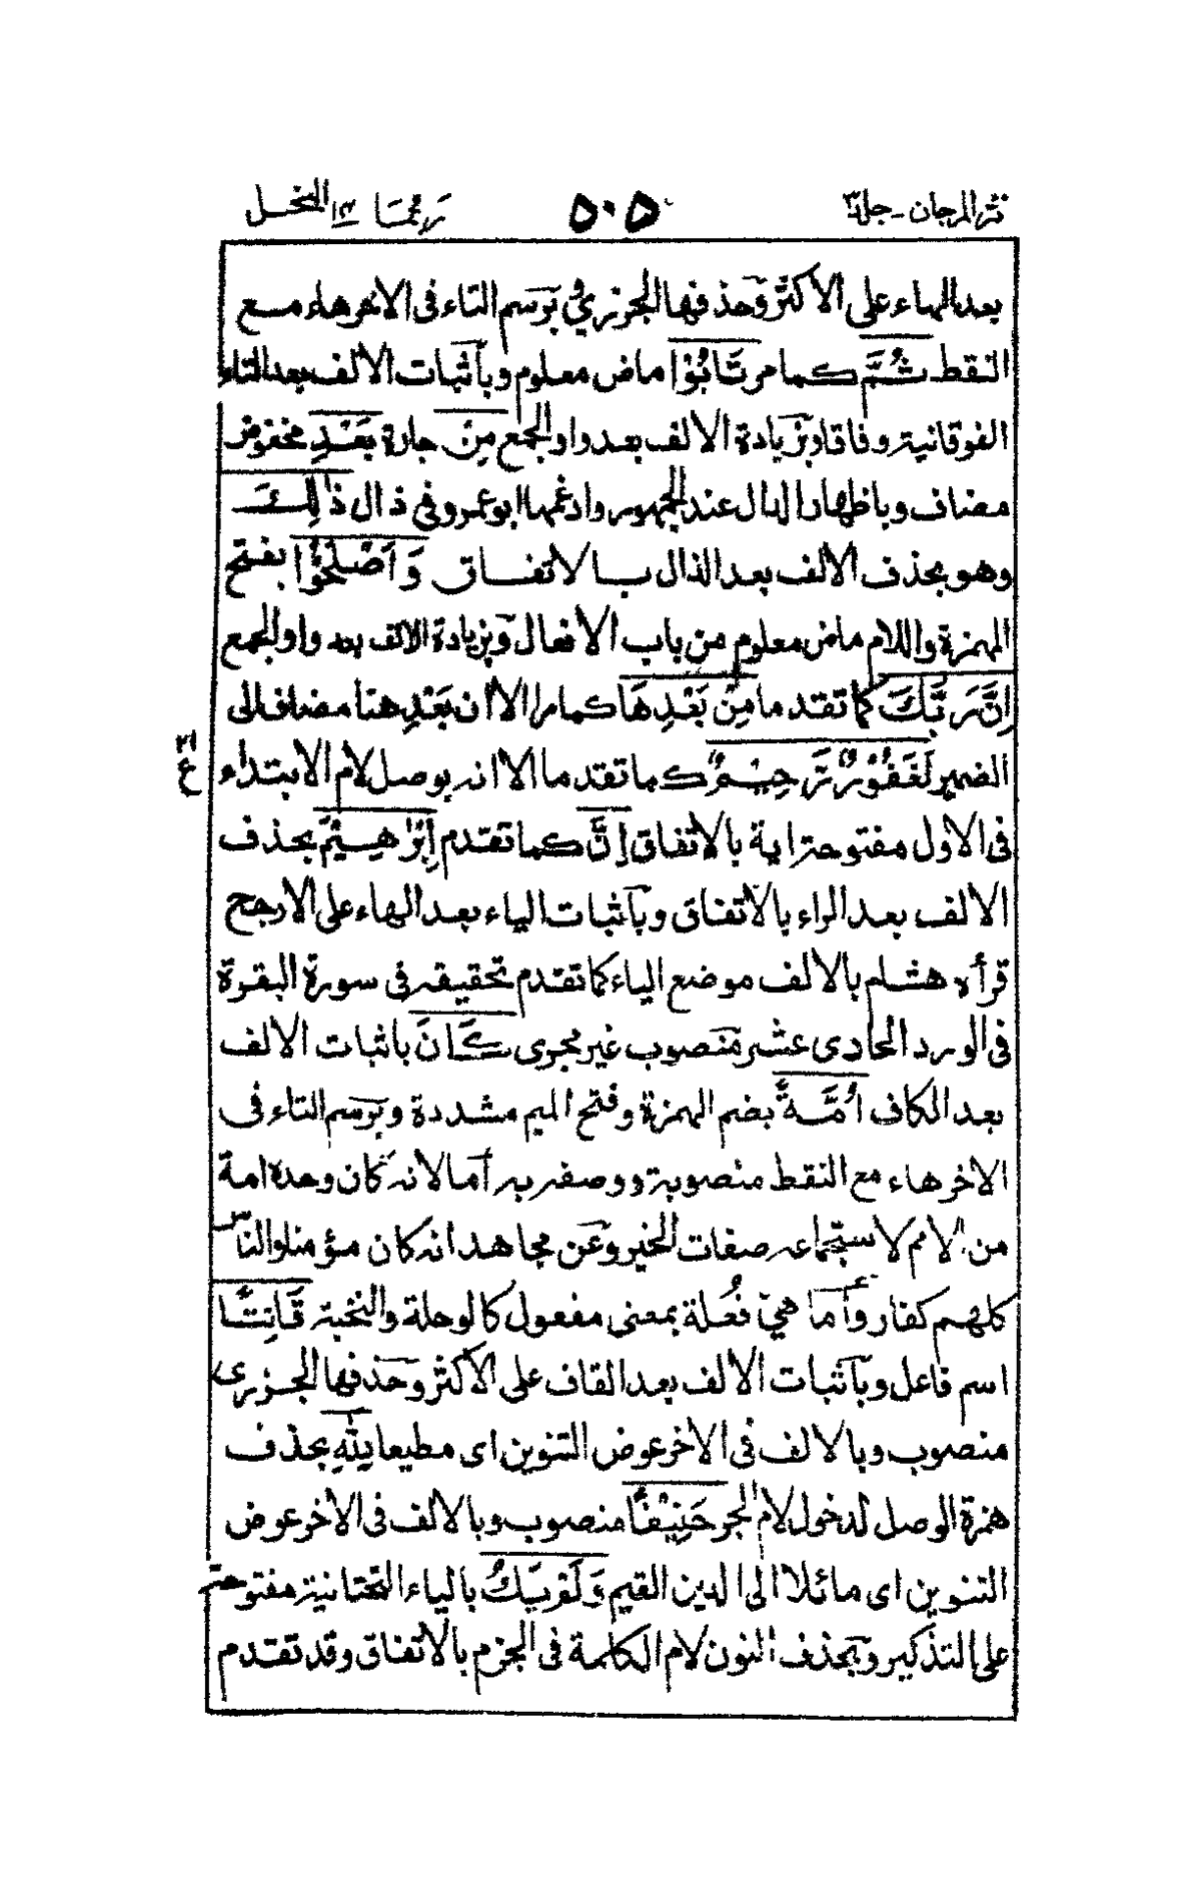 نثر المرجان - جلد ٣ ٥٠٥ ربما ١٤ النحل
بعد الهاء على الاكثر وحذفها الجزري وبرسم التاء فى الاخر هاء مـع
النقط ثُمَّ كـما مر تَابُوْا ماض معلوم وبأثبات الالف بعد التاء
الفوقانية وفاقا وبزيادة الالف بعد واو الجمع مِنْ جارة بَعْدِ مخفوض
مضاف وباظهار الدال عند الجمهور وادغمها ابو عمرو فى ذال ذٰلِكَ
وهو بحذف الالف بعد الذال بـالاتفـاق وَاَصْلَحُوْا بفتح
الهمزة واللام ماض معلوم من باب الافعال وبزيادة الالف بعد واو الجمع
اِنَّ رَبَّكَ كما تقدم ما مِنْ بَعْدِهَا كما مرا الا ان بَعْدِ هنا مضاف الى
الضمير لَغَفُوْرٌ رَّحِيْمٌ كـما تقدما الا انه بوصل لام الابتداء
ع ٢١
فى الاول مفتوحة اية بالاتفاق اِنَّ كـما تقدم اِبْرٰهِيْمَ بحذف
الالف بعد الراء بالاتفاق وبأثبات الياء بعد الهاء على الارجح
قرأه هشام بالالف موضع الياء كما تقدم تحقيقه فى سورة البقرة
فى الورد الحادى عشر منصوب غير مجرى كَانَ باثبات الالف
بعد الكاف اُمَّةً بضم الهمزة وفتح الميم مشددة وبرسم التاء فى
الاخر هاء مع النقط منصوبة ووصفه به أما لانه كان وحده امة
من الامم لاستجماعه صفات الخير وعن مجاهد انه كان مؤمنا والناس
كلهم كفار وأما هي فُعلة بمعنى مفعول كالوحلة والنخبة قَانِتًا
اسم فاعل وبأثبات الالف بعد القاف على الاكثر وحذفها الجزرى
منصوب وبالالف فى الاخر عوض التنوين اى مطيعا لِلّٰهِ بحذف
همزة الوصل لدخول لام الجر حَنِيْفًا منصوب وبالالف فى الاخر عوض
التنوين اى مائلا الى الدين القيم وَلَمْ يَكُ بالياء التحتانية مفتوحة
على التذكير وبحذف النون لام الكلمة فى الجزم بالاتفاق وقد تقدم